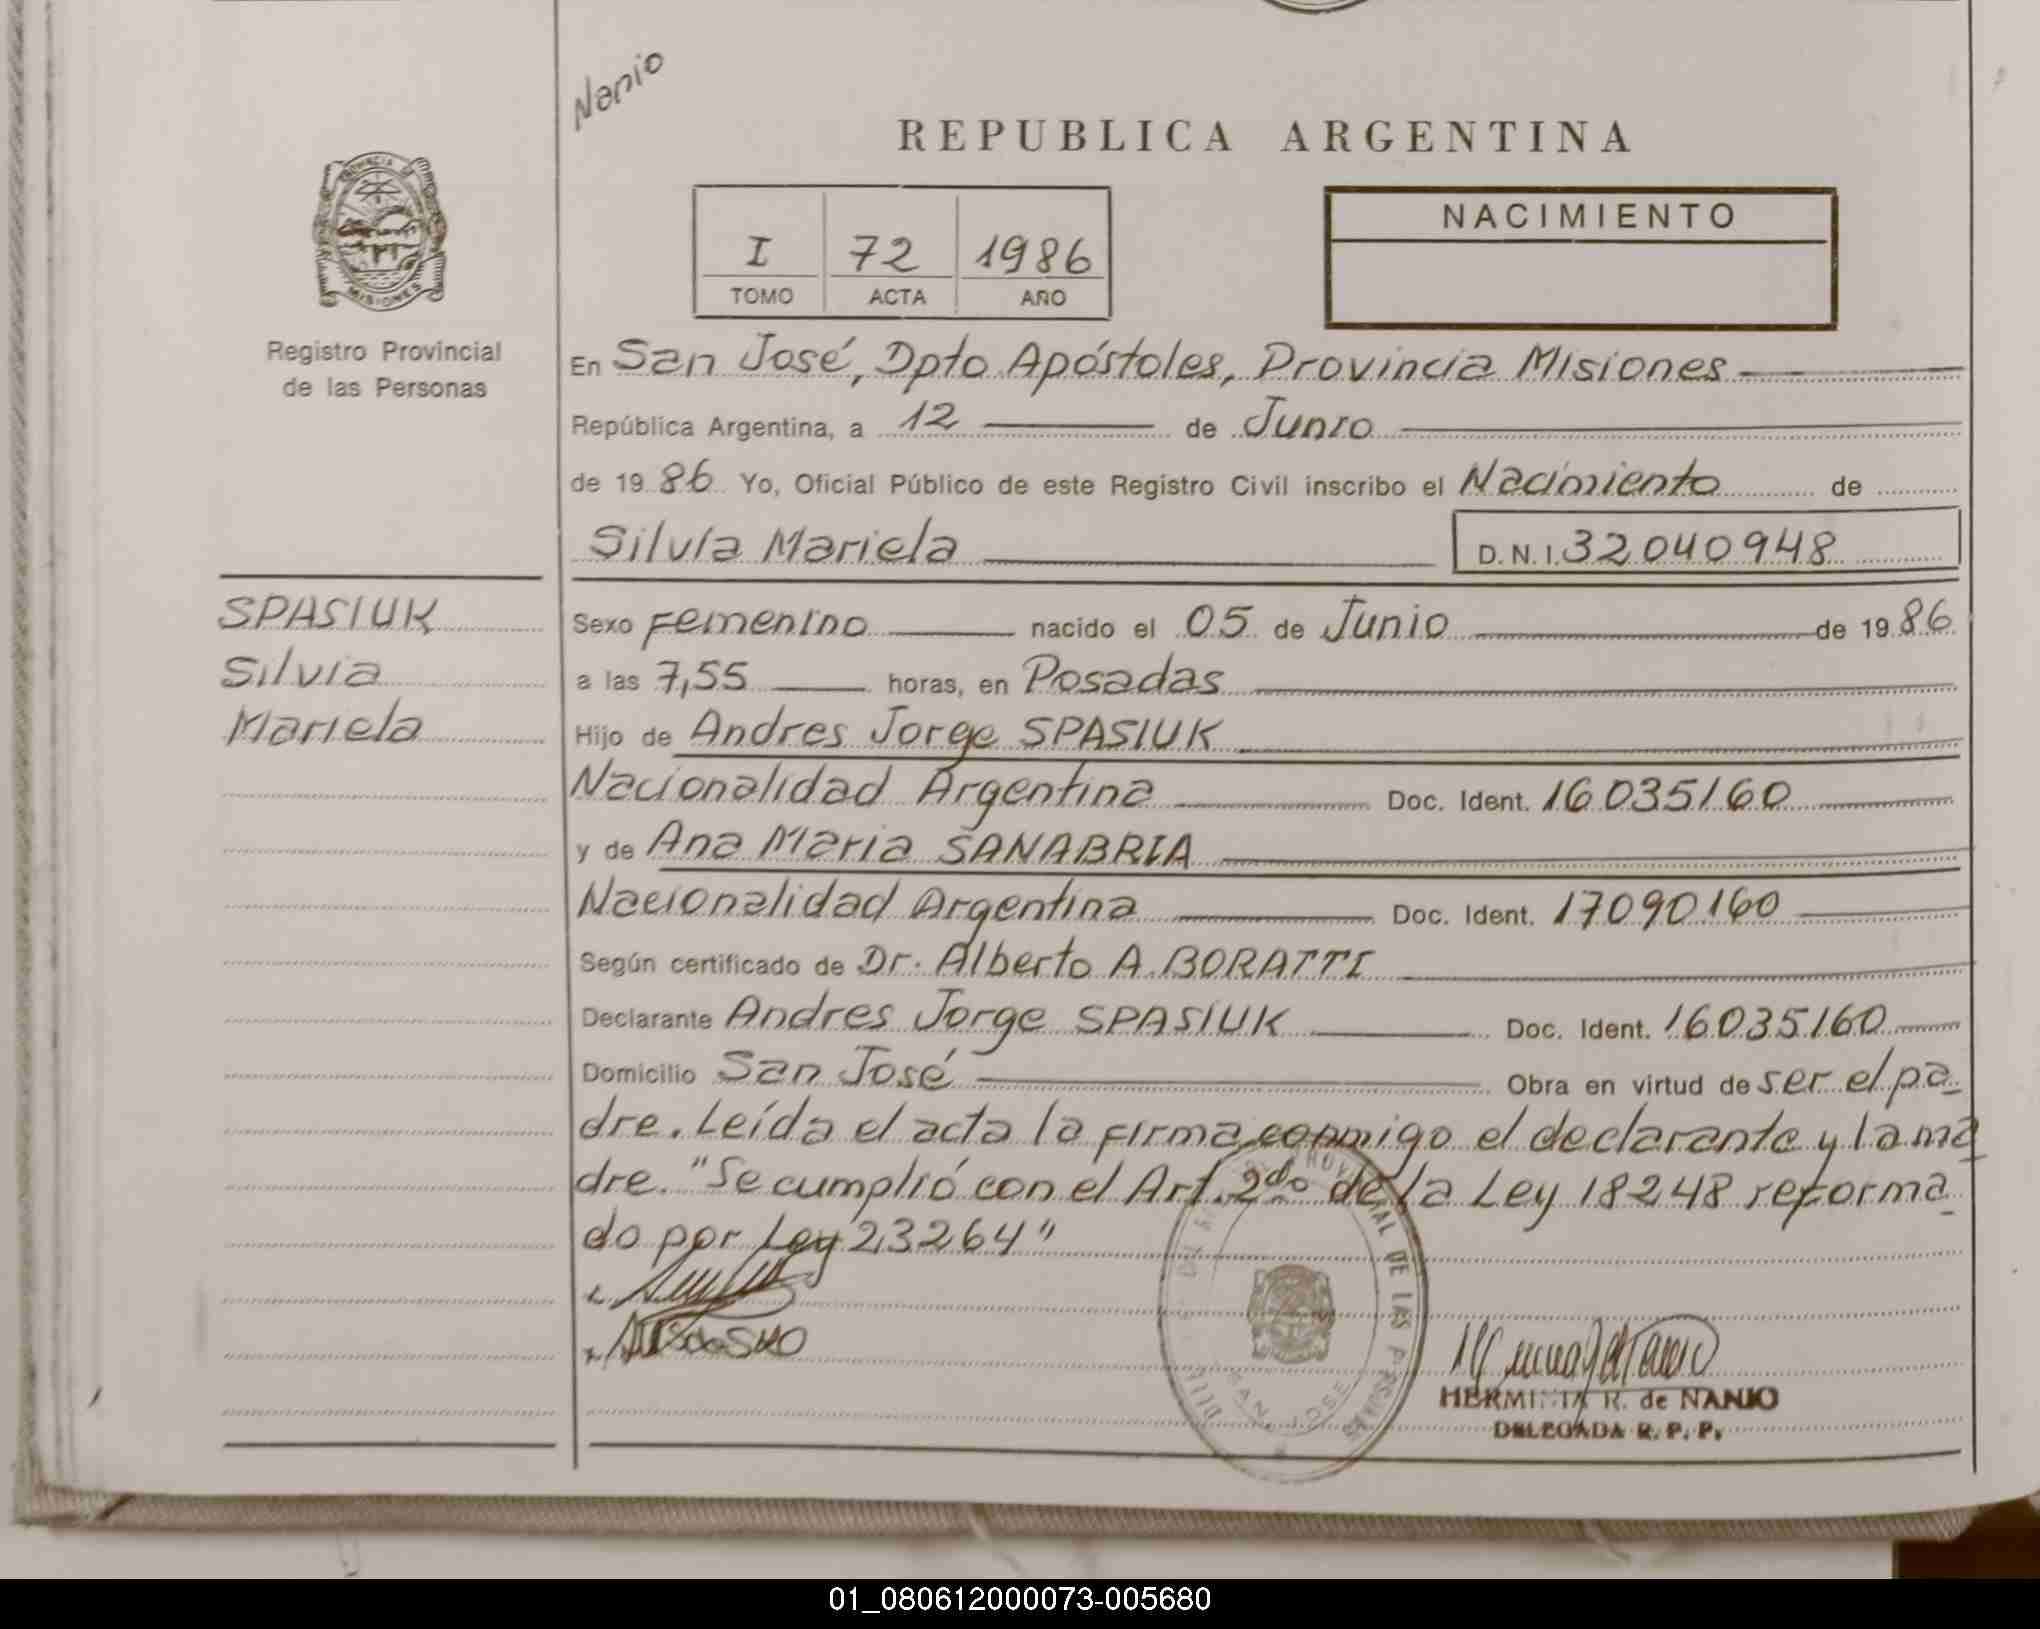 Nanio
REPUBLICA ARGENTINA
I 72 1986
TOMO ACTA AÑO
NACIMIENTO
PROVINCIA DE MISIONES
Registro Provincial
de las Personas
En San José, Dpto Apóstoles, Provincia Misiones
República Argentina, a 12 de Junio
de 1986 Yo, Oficial Público de este Registro Civil inscribo el Nacimiento de
Silvia Mariela D.N.I. 32040948
SPASIUK
Silvia
Mariela
Sexo Femenino nacido el 05 de Junio de 1986
a las 7,55 horas, en Posadas
Hijo de Andres Jorge SPASIUK
Nacionalidad Argentina Doc. Ident. 16035160
y de Ana Maria SANABRIA
Nacionalidad Argentina Doc. Ident. 17090160
Según certificado de Dr. Alberto A. BORATTI
Declarante Andres Jorge SPASIUK Doc. Ident. 16035160
Domicilio San José Obra en virtud de ser el pa
dre. Leída el acta la firma conmigo el declarante y la ma
dre. "Se cumplió con el Art. 2do de la Ley 18248 reforma
do por Ley 23264"
PROVINCIAL DE LAS PERSONAS
SAN JOSE
HERMINIA R. de NANIO
DELEGADA R. P. P.
01_080612000073-005680